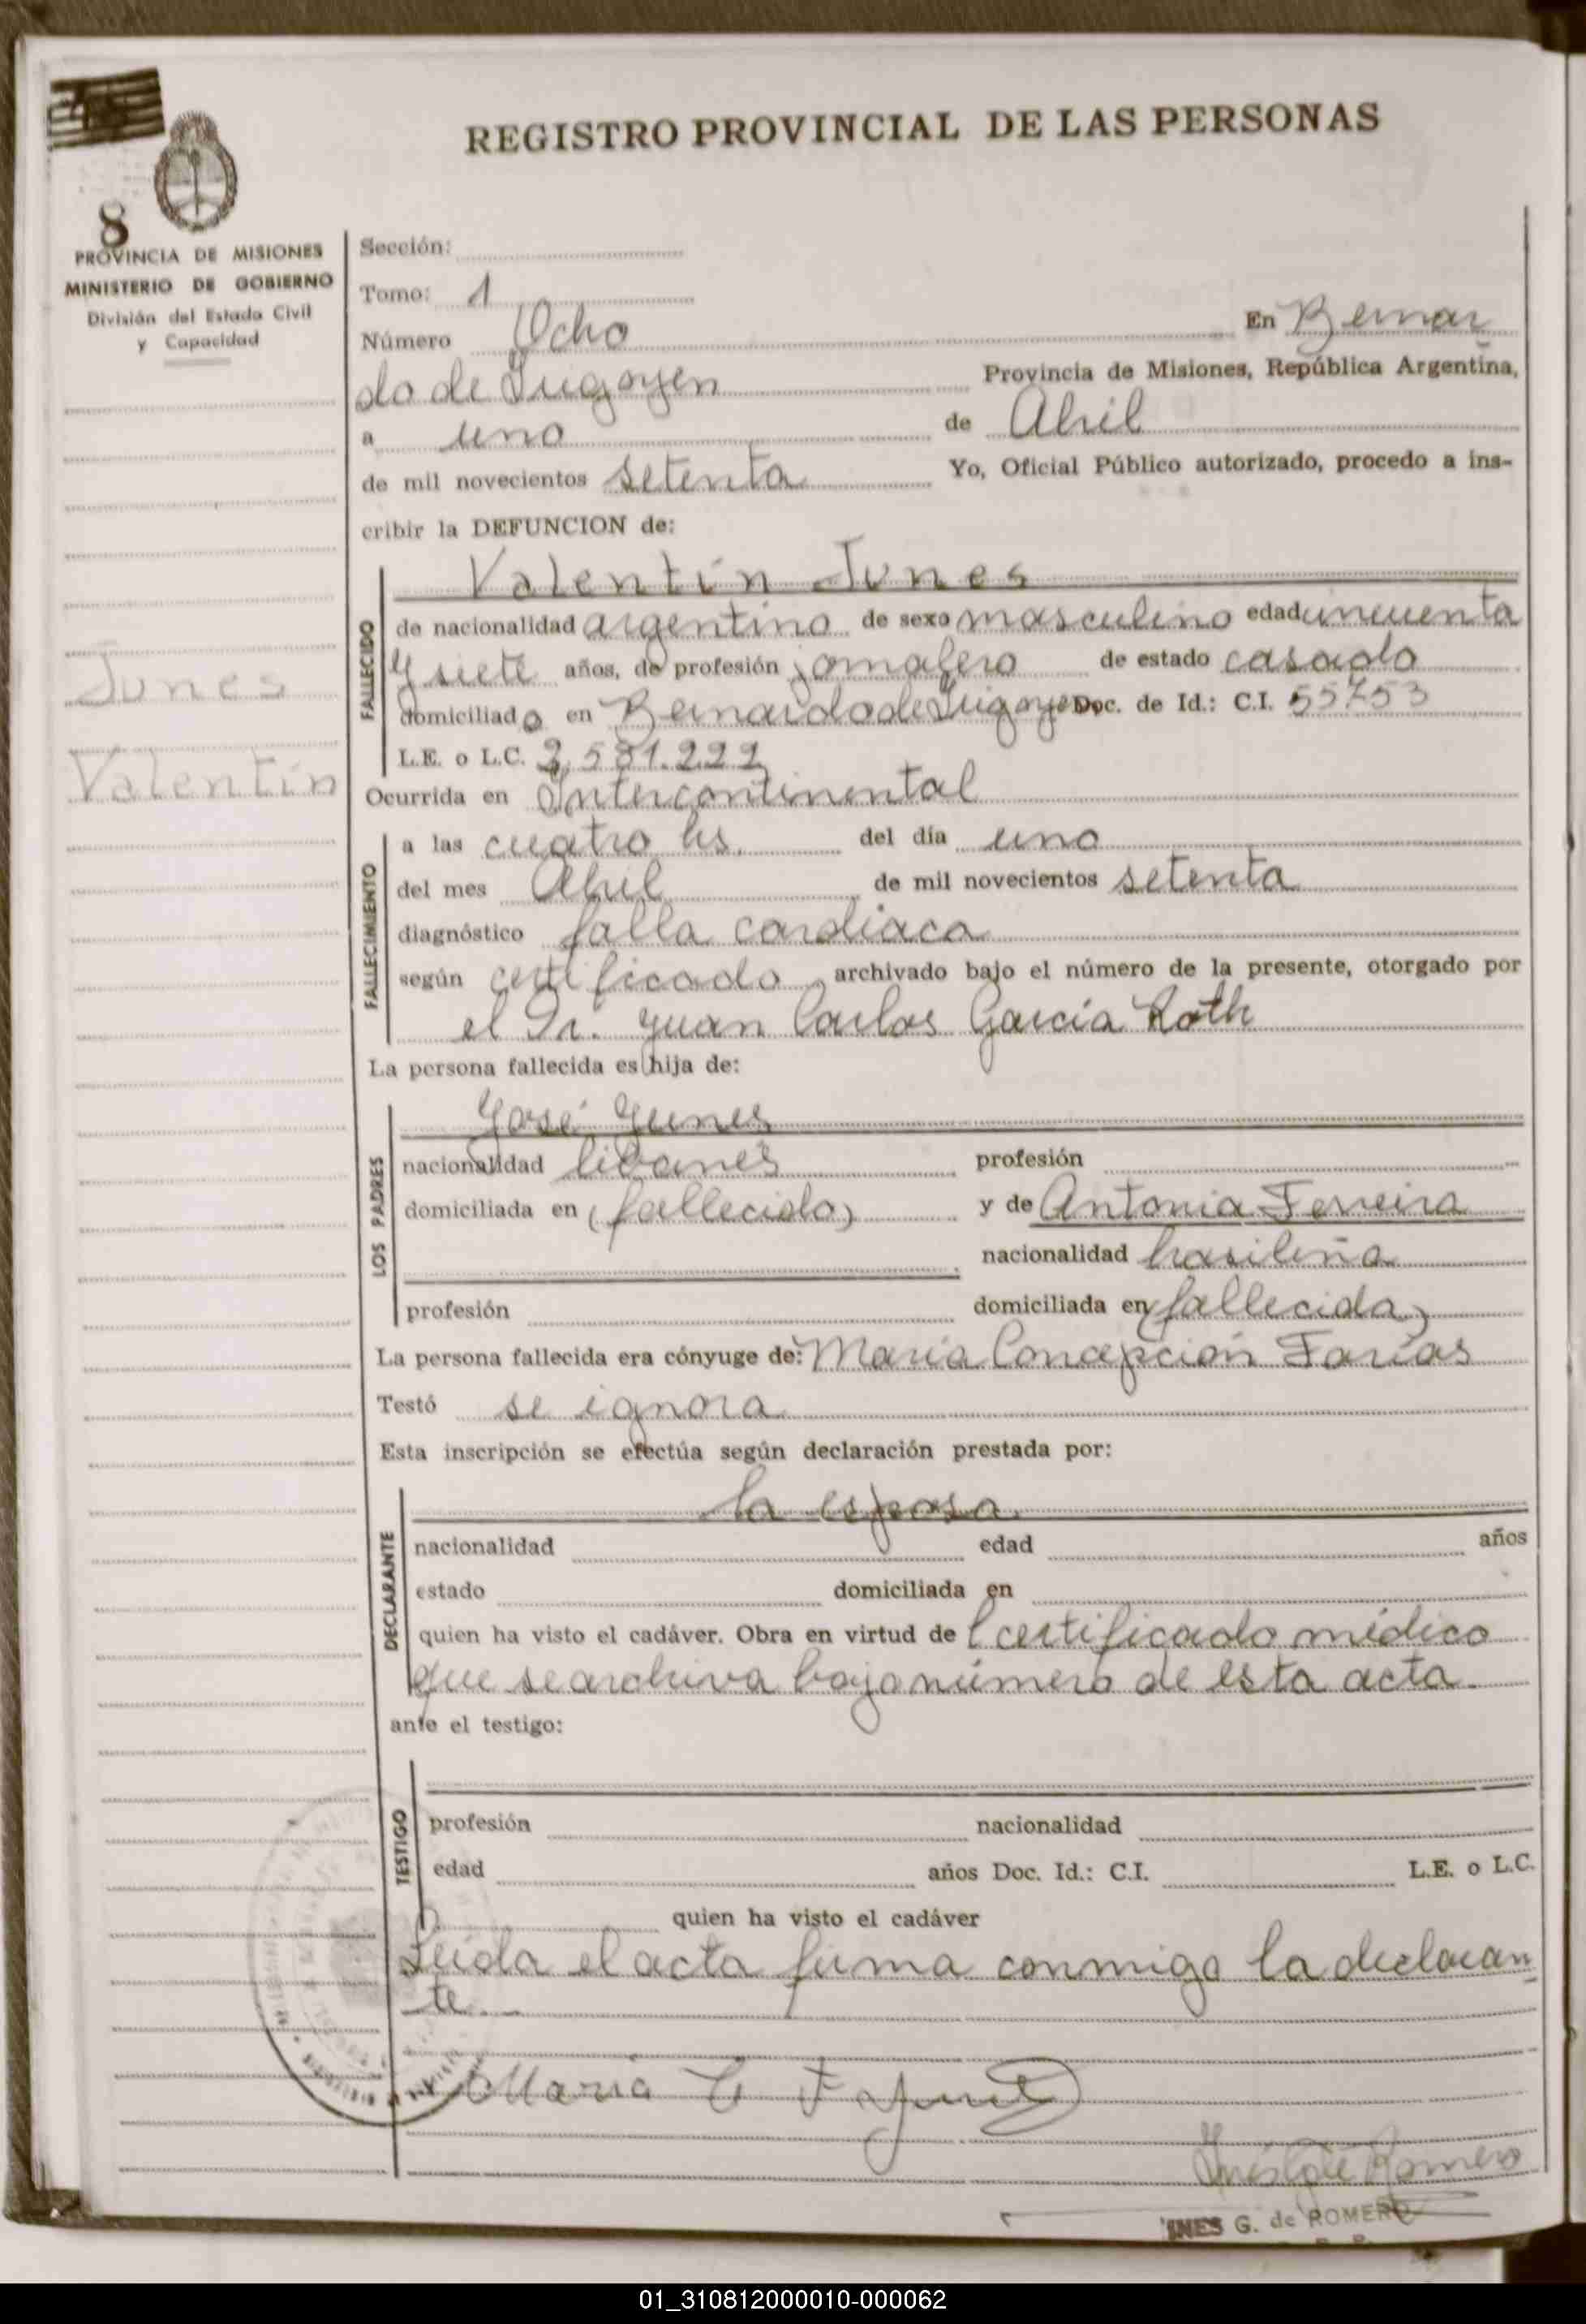 REGISTRO PROVINCIAL DE LAS PERSONAS
8
PROVINCIA DE MISIONES
MINISTERIO DE GOBIERNO
División del Estado Civil
y Capacidad
Junes
Valentín
Sección:
Tomo: 1
Número Ocho En Bernar
do de Irigoyen Provincia de Misiones, República Argentina,
a uno de Abril
de mil novecientos setenta Yo, Oficial Público autorizado, procedo a ins-
cribir la DEFUNCION de:
FALLECIDO
Valentín Junes
de nacionalidad argentino de sexo masculino edad cincuenta
y siete años, de profesión jornalero de estado casado
domiciliado en Bernardo de Irigoyen Doc. de Id.: C.I. 55753
L.E. o L.C. 3.581.222
Ocurrida en Intercontinental
FALLECIMIENTO
a las cuatro hs. del día uno
del mes Abril de mil novecientos setenta
diagnóstico falla cardiaca
según certificado archivado bajo el número de la presente, otorgado por
el Dr. Juan Carlos García Roth
La persona fallecida es hija de:
LOS PADRES
José Yunes
nacionalidad libanés profesión
domiciliada en (fallecido) y de Antonia Ferreira
nacionalidad brasileña
profesión domiciliada en (fallecida)
La persona fallecida era cónyuge de: María Concepción Farías
Testó se ignora
Esta inscripción se efectúa según declaración prestada por:
DECLARANTE
la esposa
nacionalidad edad años
estado domiciliada en
quien ha visto el cadáver. Obra en virtud de l certificado médico
que se archiva bajo número de esta acta
ante el testigo:
TESTIGO
profesión nacionalidad
edad años Doc. Id.: C.I. L.E. o L.C.
quien ha visto el cadáver
Leída el acta firma conmigo la declaran
te.
Maria C F Yunes
Inés G de Romero
INES G. de ROMERO
01_310812000010-000062